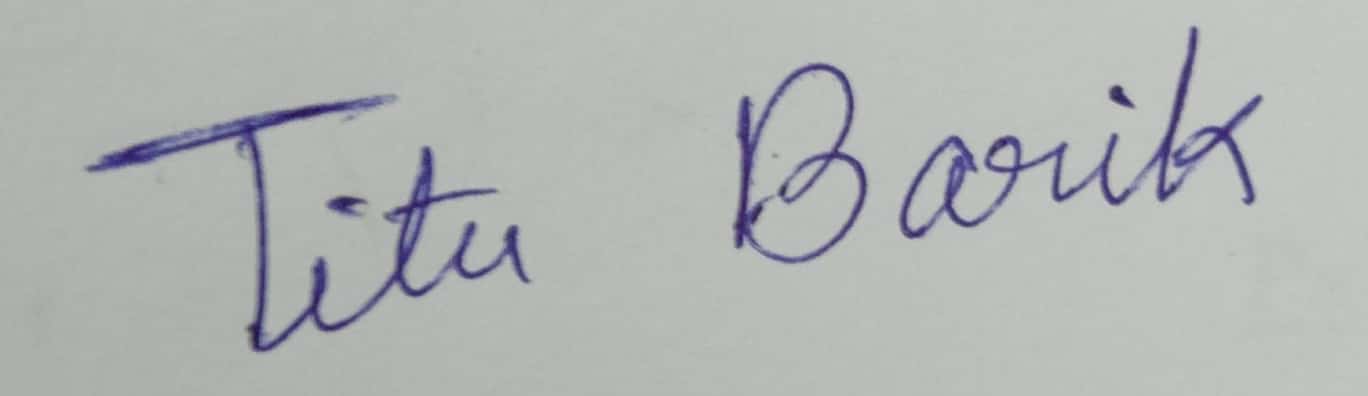 Titu Barik